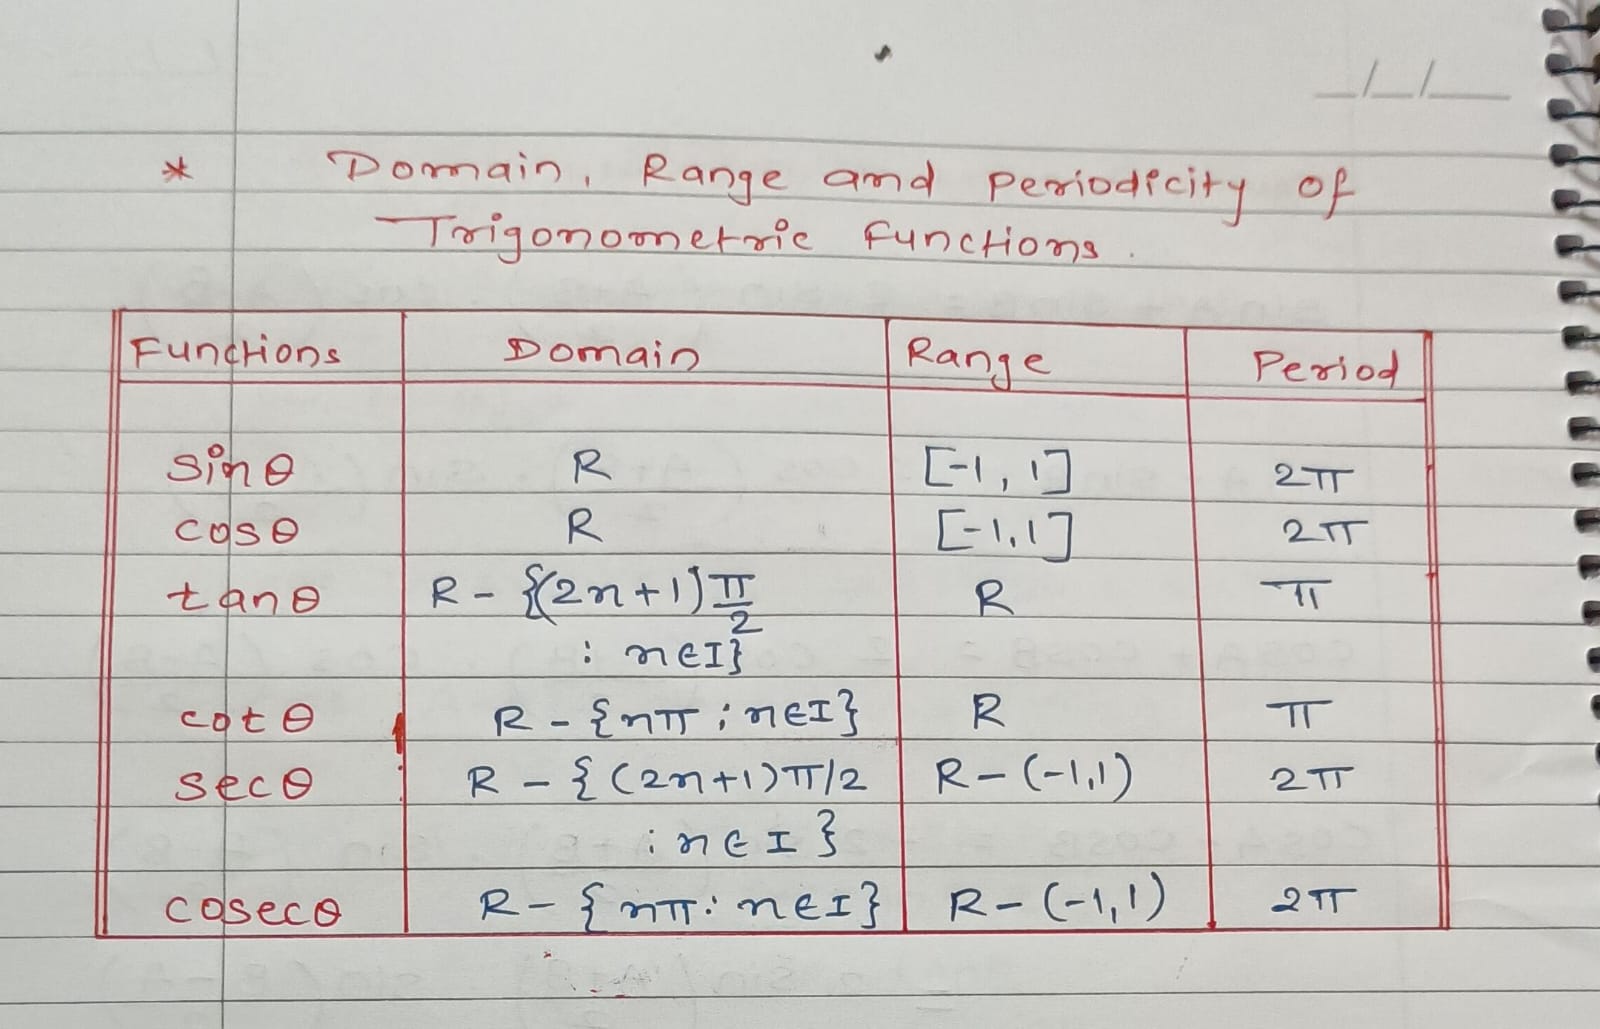 * Domain, Range and Periodicity of
Trigonometric Functions.
Functions Domain Range Period
sin θ R [-1, 1] 2π
cos θ R [-1, 1] 2π
tan θ R - {(2n+1) π/2 R π
: n∈I}
cot θ R - {nπ ; n∈I} R π
sec θ R - {(2n+1)π/2 R - (-1,1) 2π
; n∈I}
cosec θ R - {nπ : n∈I} R - (-1,1) 2π